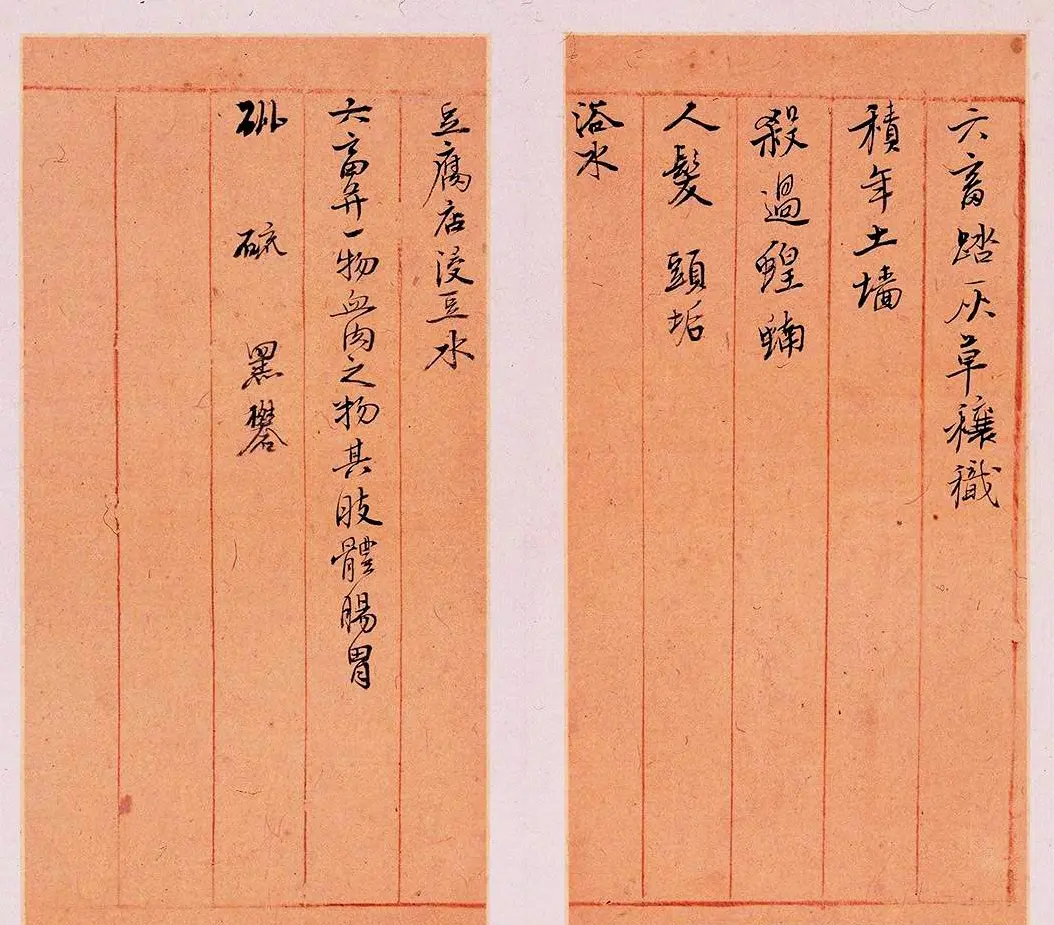 六畜踏灰草穰穢
積年土墻
殺過蝗蝻
人髮 頭垢
浴水
豆腐店浸豆水
六畜并一物血肉之物其肢體腸胃
硫 黑礬